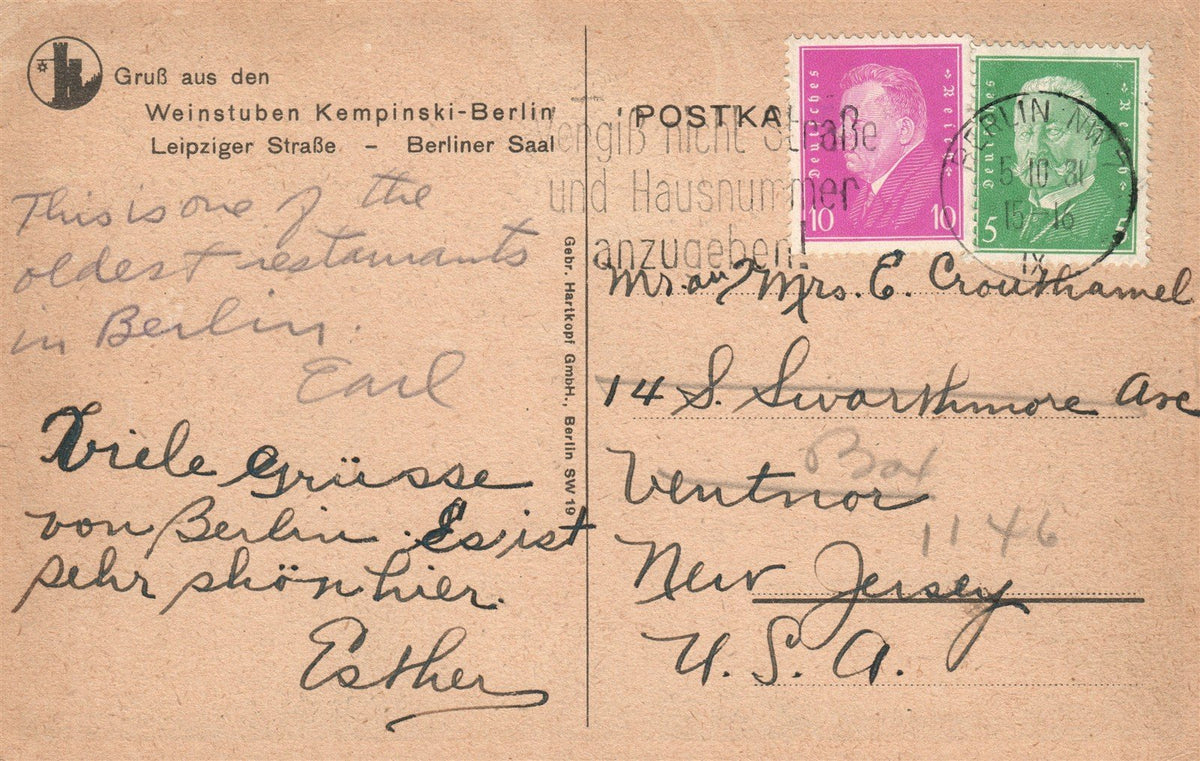 Gruß aus den
Weinstuben Kempinski-Berlin
Leipziger Straße – Berliner Saal
This is one of the
oldest restaurants
in Berlin.
Earl
Viele Grüsse
von Berlin. Es ist
sehr shön hier.
Esther
Gebr. Hartkopf GmbH., Berlin SW 19
POSTKA
Vergiß nicht Straße
und Hausnummer
anzugeben!
Deutsches Reich
10 10
Deutsches Reich
5 5
BERLIN NW 7
5.10.31
15-16
Mr. and Mrs. E. Crouthamel
14 S. Swarthmore Ave
Ventnor
Box
1146
New Jersey
U. S. A.